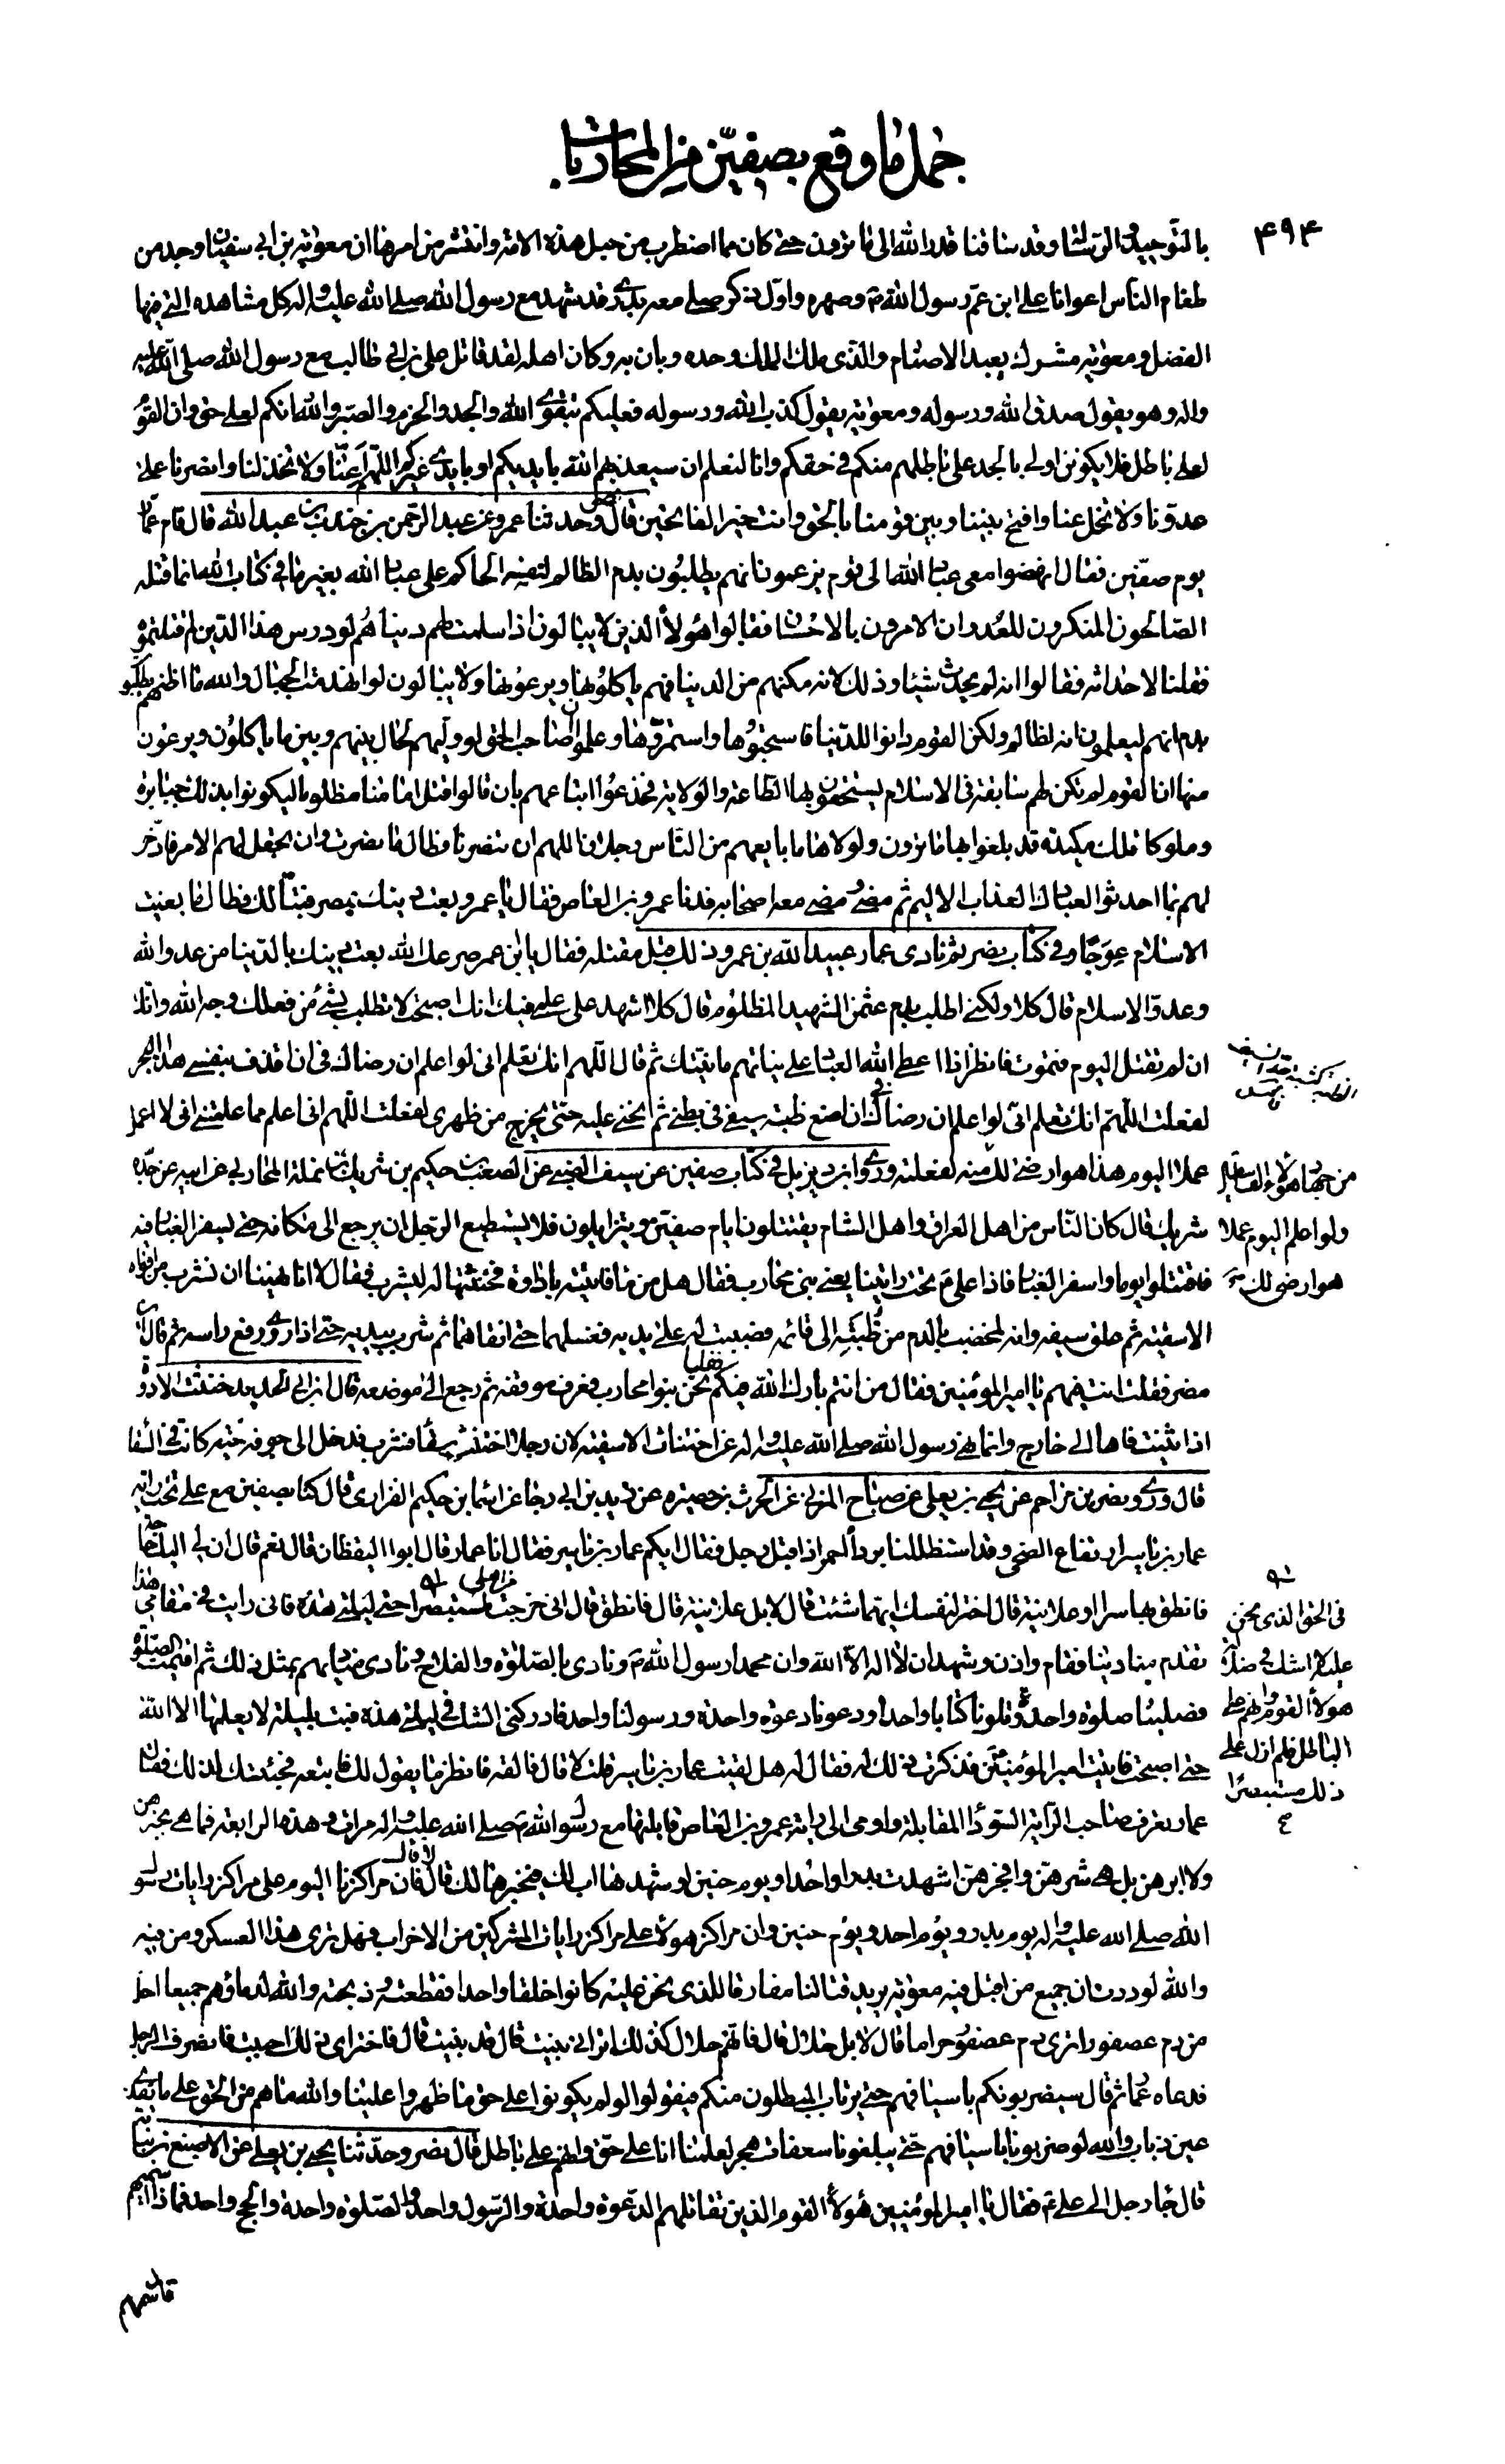 جمل ما وقع بصفين من المحاربات
۴۹۴
بالتوحيد والرسالة وقد ساقنا قدر الله الى ما ترون حتى كان مما اضطرب من حبل هذه الامة وانتشر من امرها ان معوية بن ابي سفين وجد من
طغام الناس اعوانا على علي ابن عم رسول الله ص وصهره واول ذكر صلى معه بدري قد شهد مع رسول الله صلى الله عليه واله كل مشاهده التي فيها
الفضل ومعوية مشرك يعبد الاصنام والذي ملك الملك وحده وبان به وكان اهله لقد قاتل علي بن ابي طالب مع رسول الله صلى الله عليه
واله وهو يقول صدق الله ورسوله ومعوية يقول كذب الله ورسوله فعليكم بتقوى الله والجد والحزم والصبر والله انكم لعلى حق وان القوم
لعلى باطل فلا يكونن اولى بالجد على باطلهم منكم في حقكم وانا لنعلم ان سيعذبهم الله بايديكم او بايدي غيركم اللهم اعنا ولا تخذلنا وانصرنا على
عدونا ولا تخل عنا وافتح بيننا وبين قومنا بالحق وانت خير الفاتحين قال نصر وحدثنا عمرو عن عبد الرحمن بن جندب عن عبد الله قال قام عمار
يوم صفين فقال انهضوا معي عباد الله الى قوم يزعمون انهم يطلبون بدم الظالم لنفسه الحاكم على عباد الله بغير ما في كتاب الله انما قتله
الصالحون المنكرون للعدوان الامرون بالاحسان فقالوا هؤلاء الذين لا يبالون اذا سلمت لهم دنياهم لو درس هذا الدين لم قتلتموه
فقلنا لاحداثه فقالوا انه لم يحدث شيئا وذلك لانه مكنهم من الدنيا فهم ياكلونها ويرعونها ولا يبالون لو انهدمت الجبال والله ما اظنهم يطلبون
بدم انهم ليعلمون انه لظالم ولكن القوم دانوا للدنيا فاستحبوها واستمرؤها وعلموا ان صاحب الحق لو وليهم لحال بينهم وبين ما ياكلون ويرعون
منها ان القوم لم يكن لهم سابقة في الاسلام يستحقون بها الطاعة والولاية فخدعوا اتباعهم بان قالوا قتل امامنا مظلوما ليكونوا بذلك جبابرة
وملوكا تلك مكيدة قد بلغوا بها ما ترون ولولاها ما بايعهم من الناس رجلان اللهم ان تنصرنا فطال ما نصرت وان تجعل لهم الامر فادخر
لهم بما احدثوا لعبادك العذاب الاليم ثم مضى ومضى معه اصحابه فدنا عمرو بن العاص فقال يا عمرو بعت دينك بمصر فتبا لك فطال ما بغيت
الاسلام عوجا وفي كتاب نصر ثم نادى عمار عبيد الله بن عمر وذلك قبل مقتله فقال يا بن عمر صرعك الله بعت دينك بالدنيا من عدو الله
وعدو الاسلام قال كلا ولكني اطلب بدم عثمن الشهيد المظلوم قال كلا اشهد على علمي فيك انك اصبحت لا تطلب بشيء من فعلك وجه الله وانك
ان لم تقتل اليوم فتموت فانظر اذا اعطى الله العباد على نياتهم ما نيتك ثم قال اللهم انك تعلم اني لو اعلم ان رضاك في ان اقذف بنفسي هذا البحر
لفعلت اللهم انك تعلم اني لو اعلم ان رضاك في ان اضع ظبة سيفي في بطني ثم انحني عليه حتى يخرج من ظهري لفعلت اللهم اني اعلم مما علمتني اني لا اعمل
عملا اليوم هذا هو ارضى لك من جهاد هؤلاء الفاسقين
ولو اعلم اليوم عملا
هو ارضى لك منه
منه لفعلته وروى ابن ديزيل في كتاب صفين عن سيف الضبي عن الصعب بن حكيم بن شريك بن نملة المحاربي عن ابيه عن جده
شريك قال كان الناس من اهل العراق واهل الشام يقتتلون ايام صفين ويتزايلون فلا يستطيع الرجل ان يرجع الى مكانه حتى يسفر الغبار عنه
فاقتتلوا يوما واسفر الغبار فاذا علي ع تحت رايتنا يعني بني محارب فقال هل من ماء فاتيته باداوة فخنثتها له ليشرب فقال لا انا نهينا ان نشرب من افواه
الاسقية ثم علق سيفه وانه لمخضب بالدم من ظبته الى قائمه فصببت له على يديه فغسلهما حتى انقاهما ثم شرب بيديه حتى اذا روي ورفع راسه ثم قال اين
مضر فقلت انت فيهم يا امير المؤمنين فقال من انتم بارك الله فيكم فقلنا نحن بنوا محارب فعرف موقفه ثم رجع الى موضعه قال ابن ابي الحديد خنثت الاداوة
اذا ثنيت فاها الى خارج وانما نهى رسول الله صلى الله عليه واله عن اختناث الاسقية لان رجلا اختنث سقاء فشرب فدخل الى جوفه حية كانت في السقاء
قال وروى نصر بن مزاحم عن يحيى بن يعلى عن صباح المزني عن الحرث بن حصيرة عن زيد بن ابي رجا عن اسما بن حكيم الفزاري قال كنا بصفين مع علي تحت راية
عمار بن ياسر ارتفاع الضحى وقد استظللنا برداء احمر اذ اقبل رجل فقال ايكم عمار بن ياسر فقال انا عمار قال ابوا اليقظان قال نعم قال ان لي اليك حاجة
فانطق بها سرا او علانية قال اختر لنفسك ايهما شئت قال لا بل علانية قال فانطق قال اني خرجت من اهلي مستبصرا حتى ليلتي هذه فاني رايت في منامي هذا
في الحق الذي نحن
عليه لا اشك في ضلالة
هولاء القوم وانهم على
الباطل فلم ازل على
ذلك مستبصرا
تقدم منادينا فقام واذن وشهد ان لا اله الا الله وان محمدا رسول الله ص ونادى بالصلوة والفلاح ونادى مناديهم بمثل ذلك ثم اقيمت الصلوة
فصلينا صلوة واحدة وتلونا كتابا واحدا ودعونا دعوة واحدة ورسولنا واحد فادركني الشك في ليلتي هذه فبت بليلة لا يعلمها الا الله
حتى اصبحت فاتيت امير المؤمنين فذكرت ذلك له فقال له هل لقيت عمار بن ياسر قلت لا قال فالقه فانظر ما يقول لك فاتبعه فجئتك لذلك فقال
عمار تعرف صاحب الراية السوداء المقابلة واومى الى راية عمرو بن العاص قابلتها مع رسول الله ص صلى الله عليه واله مرات وهذه الرابعة فما هي بخيرهن
ولا ابرهن بل هي شرهن وافجرهن اشهدت بدرا واحدا ويوم حنين او شهدها اب لك فيخبرها لك قال لا قال فان مراكزنا اليوم على مراكز رايات رسول
الله صلى الله عليه واله يوم بدر ويوم احد ويوم حنين وان مراكز هولاء على مراكز رايات المشركين من الاحزاب فهل ترى هذا العسكر ومن فيه
والله لوددت ان جميع من اقبل فيه معوية يريد قتالنا مفارقا للذي نحن عليه كانوا خلقا واحدا فقطعته وذبحته والله لدماؤهم جميعا احل
من دم عصفور اترى دم عصفور حراما قال لا بل حلال قال فانهم حلال كذلك اتراني بينت قال قد بينت قال فاختر اي ذلك احببت فانصرف الرجل
فدعاه عمار ثم قال سيضربونكم باسيافهم حتى يرتاب المبطلون منكم فيقولوا لو لم يكونوا على حق ما ظهروا علينا والله ما هم من الحق على ما يقذي
عين ذباب والله لو ضربونا باسيافهم حتى يبلغونا سعفات هجر لعلمنا انا على حق وانهم على باطل قال نصر وحدثنا يحيى بن يعلى عن الاصبغ بن نباتة
قال جاء رجل الى علي ع فقال يا امير المؤمنين هولاء القوم الذين تقاتلهم الدعوة واحدة والرسول واحد والصلوة واحدة والحج واحد فماذا نسميهم
قال سمهم